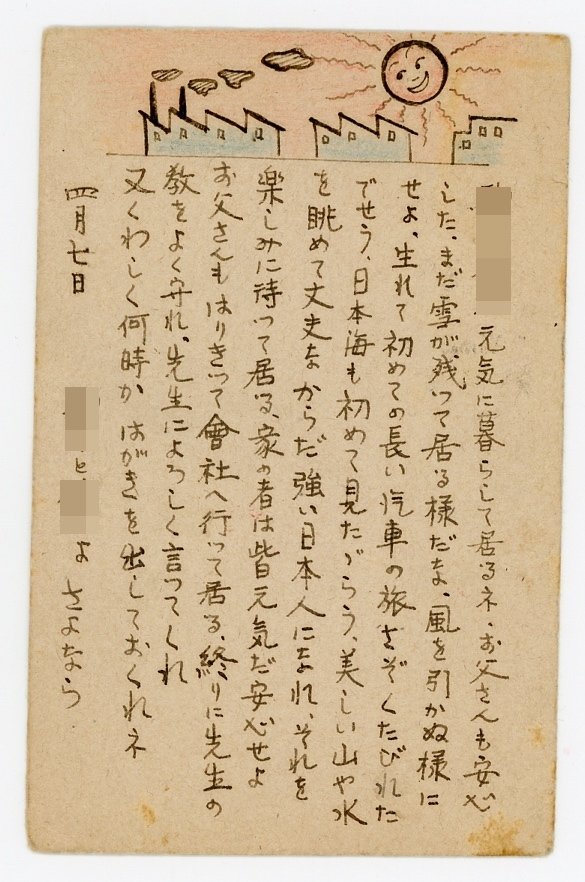 元気に暮らして居るネ、お父さんも安心
した、まだ雪が残つて居る様だな、風を引かぬ様に
せよ、生れて初めての長い汽車の旅さぞくたびれた
でせう、日本海も初めて見たゞらう、美しい山や水
を眺めて丈夫なからだ強い日本人になれ、それを
楽しみに待つて居る、家の者は皆元気だ安心せよ
お父さんもはりきつて會社へ行つて居る、終りに先生の
教をよく守れ、先生によろしく言つてくれ
又くわしく何時かはがきを出しておくれネ
四月七日
と
よ さよなら